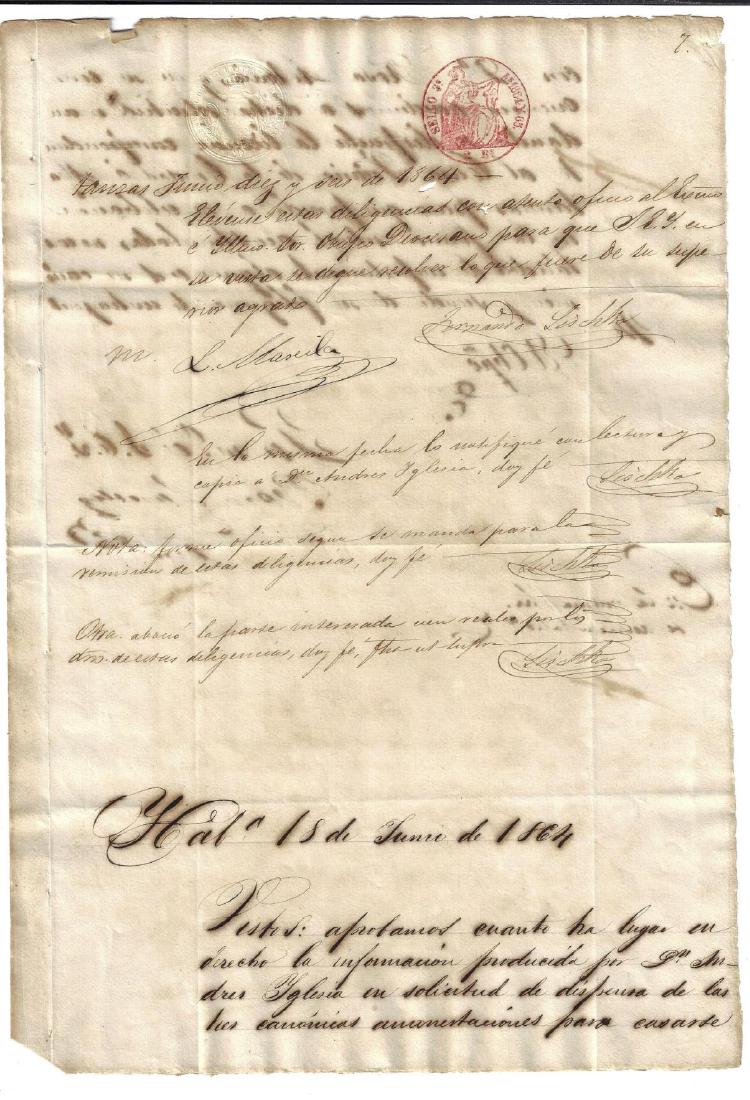 7.
SELLO 3º
2 Rs
tanzas Junio diez y seis de 1864 —
Elévense estas diligencias con atento oficio al Exmo
é Yltmo. Sor. Obispo Diocesano para que S.E.Y. en
su vista se digne resolver lo que fuere de su supe
rior agrado
Fernando Lischka
M. L. Maril
En la misma fecha lo notifiqué con lectura y
copia a Dn Andres Yglesia, doy fé
Lischka
Nota: formé oficio segun se manda para la
remision de estas diligencias, doy fé
Lischka
Otra. abonó la parte interesada cien reales por los
dros. de estas diligencias, doy fé, fha ut supra
Lischka
Haba 18 de Junio de 1864
Vistos: aprobamos cuanto ha lugar en
derecho la información producida por Dn An-
dres Yglesia en solicitud de dispensa de las
tres canónicas amonestaciones para casarse